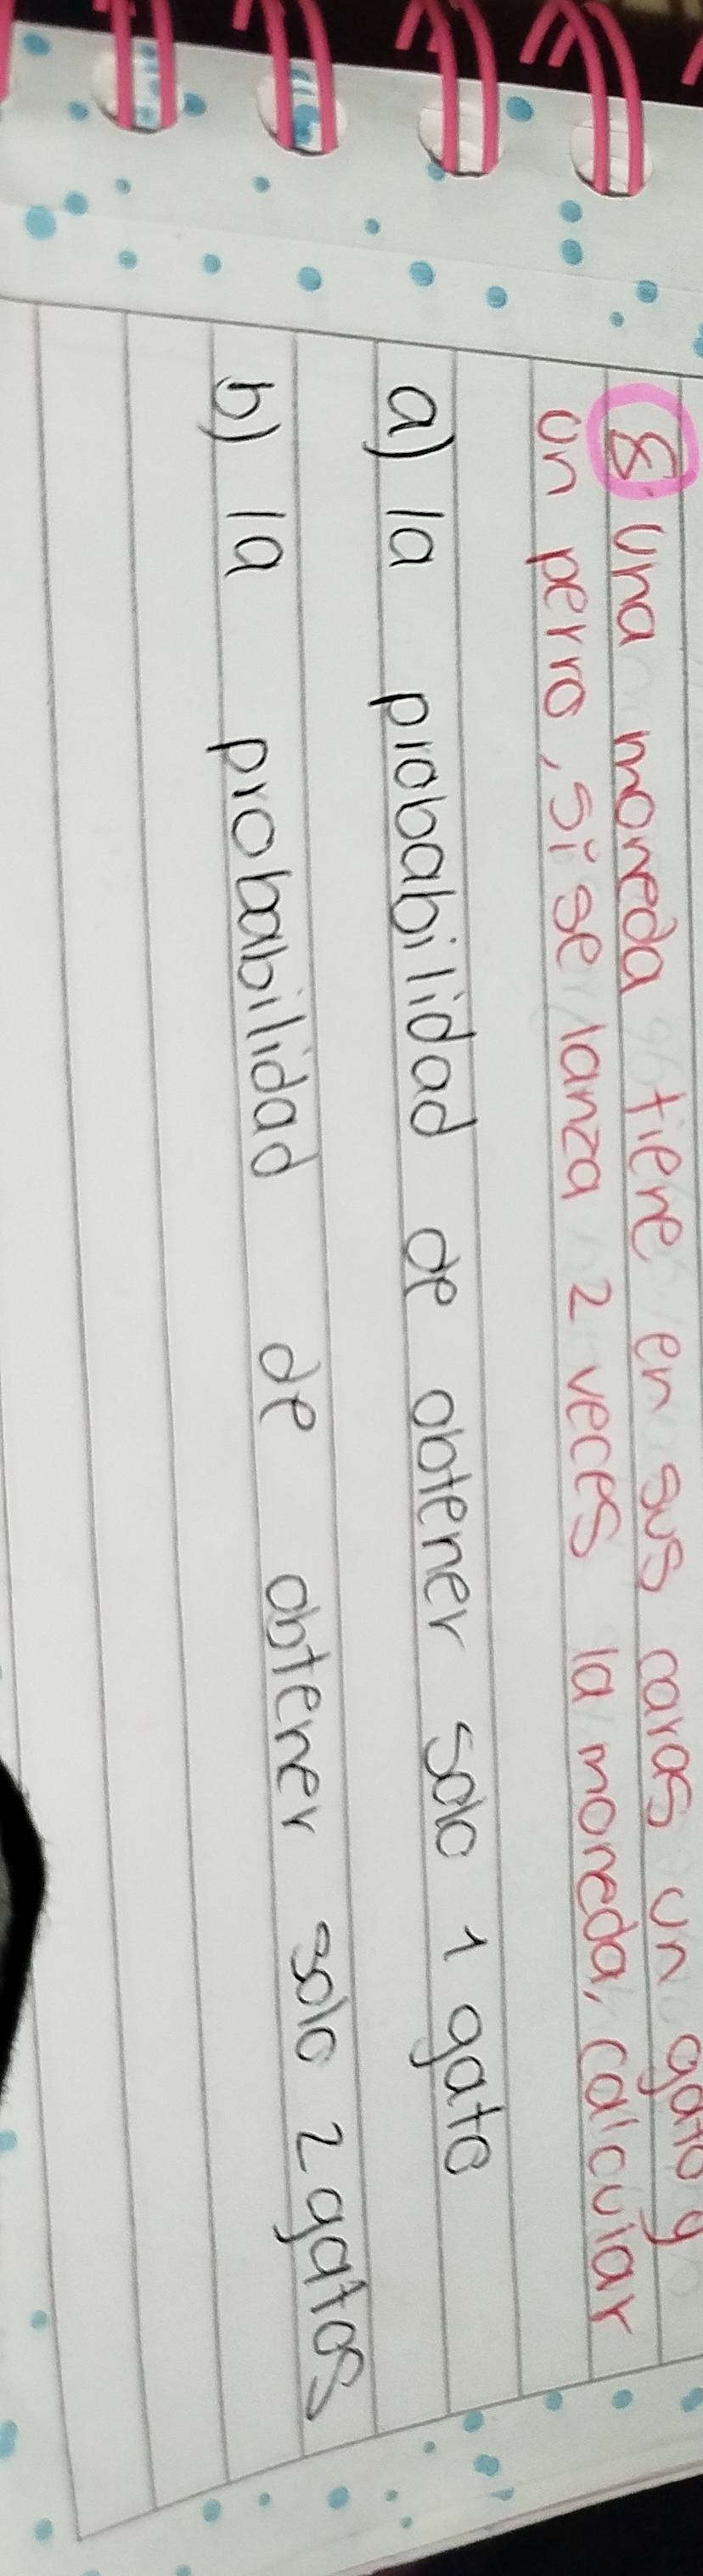 8. Una moneda tiene en sus caras un gato y
un perro, si se lanza 2 veces la moneda, calcular
a) la probabilidad de obtener solo 1 gato
b) la probabilidad de obtener solo 2 gatos